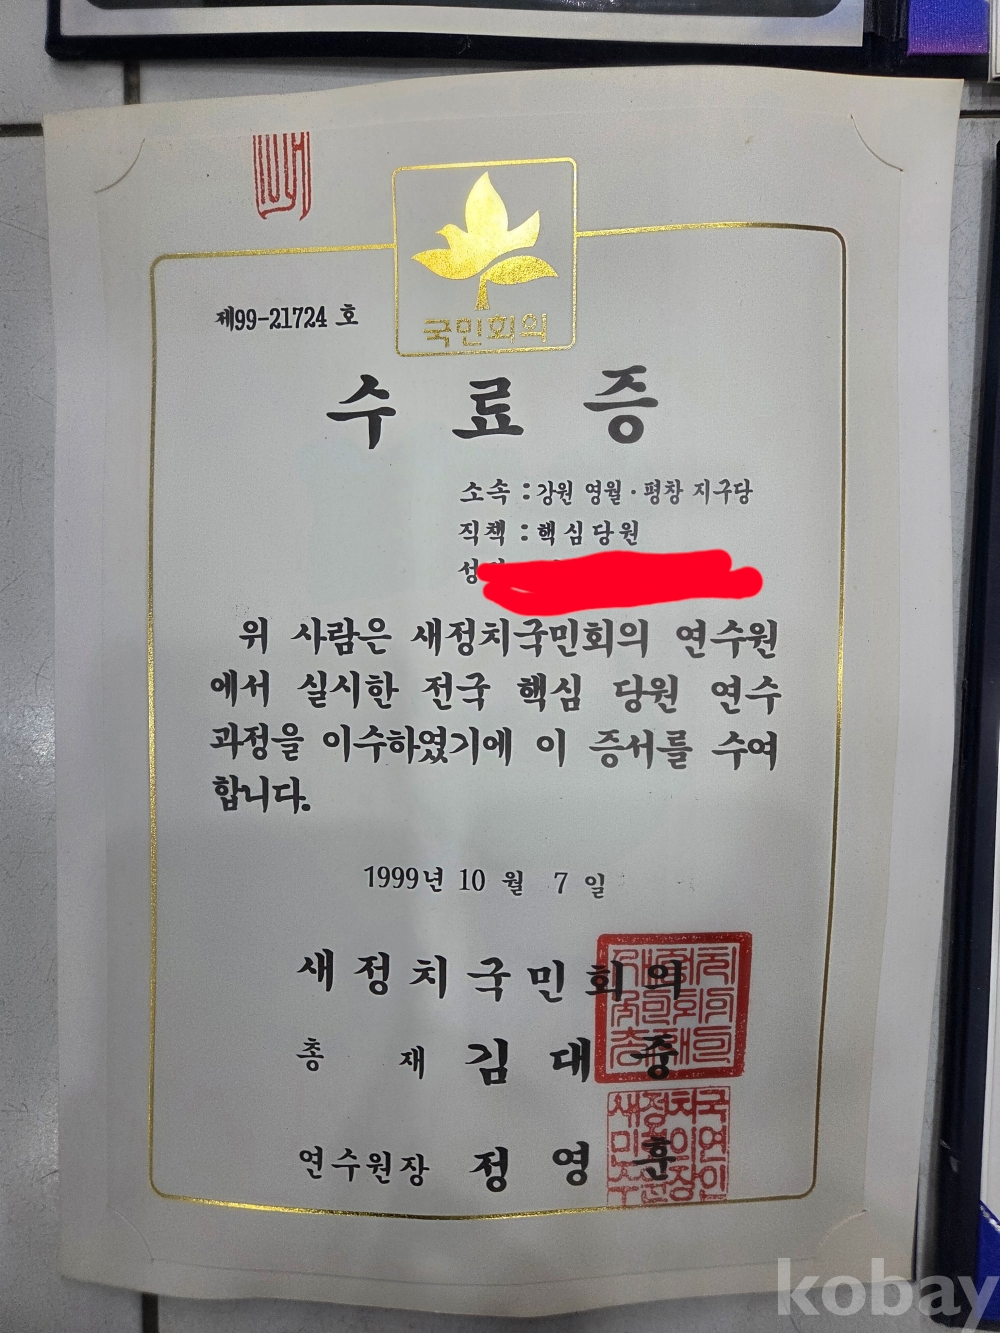 제99-21724 호
국민회의
수료증
소속 : 강원 영월·평창 지구당
직책 : 핵심당원
성
위 사람은 새정치국민회의 연수원
에서 실시한 전국 핵심 당원 연수
과정을 이수하였기에 이 증서를 수여
합니다.
1999년 10 월 7 일
새정치국민회의
총 재 김대중
연수원장 정영훈
새정치국
민회의연
수원장인
kobay